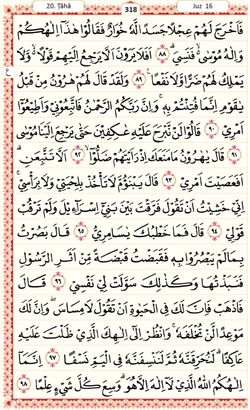 20. Ṭāhā 318 Juz 16
فَاَخْرَجَ لَهُمْ عِجْلًا جَسَدًا لَّهٗ خُوَارٌ فَقَالُوْا هٰذَآ اِلٰهُكُمْ
وَاِلٰهُ مُوْسٰى فَنَسِيَ ۗ ٨٨ اَفَلَا يَرَوْنَ اَلَّا يَرْجِعُ اِلَيْهِمْ قَوْلًا ەۙ وَّلَا
يَمْلِكُ لَهُمْ ضَرًّا وَّلَا نَفْعًا ࣖ ٨٩ وَلَقَدْ قَالَ لَهُمْ هٰرُوْنُ مِنْ قَبْلُ
يٰقَوْمِ اِنَّمَا فُتِنْتُمْ بِهٖۚ وَاِنَّ رَبَّكُمُ الرَّحْمٰنُ فَاتَّبِعُوْنِيْ وَاَطِيْعُوْٓا
اَمْرِيْ ٩٠ قَالُوْا لَنْ نَّبْرَحَ عَلَيْهِ عٰكِفِيْنَ حَتّٰى يَرْجِعَ اِلَيْنَا مُوْسٰى
٩١ قَالَ يٰهٰرُوْنُ مَا مَنَعَكَ اِذْ رَاَيْتَهُمْ ضَلُّوْٓا ۙ ٩٢ اَلَّا تَتَّبِعَنِۗ
اَفَعَصَيْتَ اَمْرِيْ ٩٣ قَالَ يَبْنَؤُمَّ لَا تَأْخُذْ بِلِحْيَتِيْ وَلَا بِرَأْسِيْۚ
اِنِّيْ خَشِيْتُ اَنْ تَقُوْلَ فَرَّقْتَ بَيْنَ بَنِيْٓ اِسْرَاۤءِيْلَ وَلَمْ تَرْقُبْ
قَوْلِيْ ٩٤ قَالَ فَمَا خَطْبُكَ يٰسَامِرِيُّ ٩٥ قَالَ بَصُرْتُ
بِمَا لَمْ يَبْصُرُوْا بِهٖ فَقَبَضْتُ قَبْضَةً مِّنْ اَثَرِ الرَّسُوْلِ
فَنَبَذْتُهَا وَكَذٰلِكَ سَوَّلَتْ لِيْ نَفْسِيْ ٩٦ قَالَ
فَاذْهَبْ فَاِنَّ لَكَ فِى الْحَيٰوةِ اَنْ تَقُوْلَ لَا مِسَاسَ ۖوَاِنَّ لَكَ
مَوْعِدًا لَّنْ تُخْلَفَهٗۚ وَانْظُرْ اِلٰٓى اِلٰهِكَ الَّذِيْ ظَلْتَ عَلَيْهِ
عَاكِفًا ۗ لَنُحَرِّقَنَّهٗ ثُمَّ لَنَنْسِفَنَّهٗ فِى الْيَمِّ نَسْفًا ٩٧ اِنَّمَآ
اِلٰهُكُمُ اللّٰهُ الَّذِيْ لَآ اِلٰهَ اِلَّا هُوَۗ وَسِعَ كُلَّ شَيْءٍ عِلْمًا ٩٨